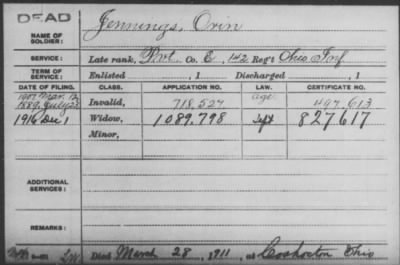 DEAD
NAME OF SOLDIER: Jennings, Orin
SERVICE: Late rank, Pvt. Co. E, 142 Reg't Ohio Inf.
TERM OF SERVICE: Enlisted , 1 Discharged , 1
DATE OF FILING. CLASS. APPLICATION NO. LAW. CERTIFICATE NO.
1907 Mar. 12 age
1889, July 22 Invalid, 718,527 497,613
1916 Dec 1 Widow, 1089.798 Sept 827617
Minor,
ADDITIONAL SERVICES:
REMARKS:
Died March 28, 1911, at Coshocton Ohio